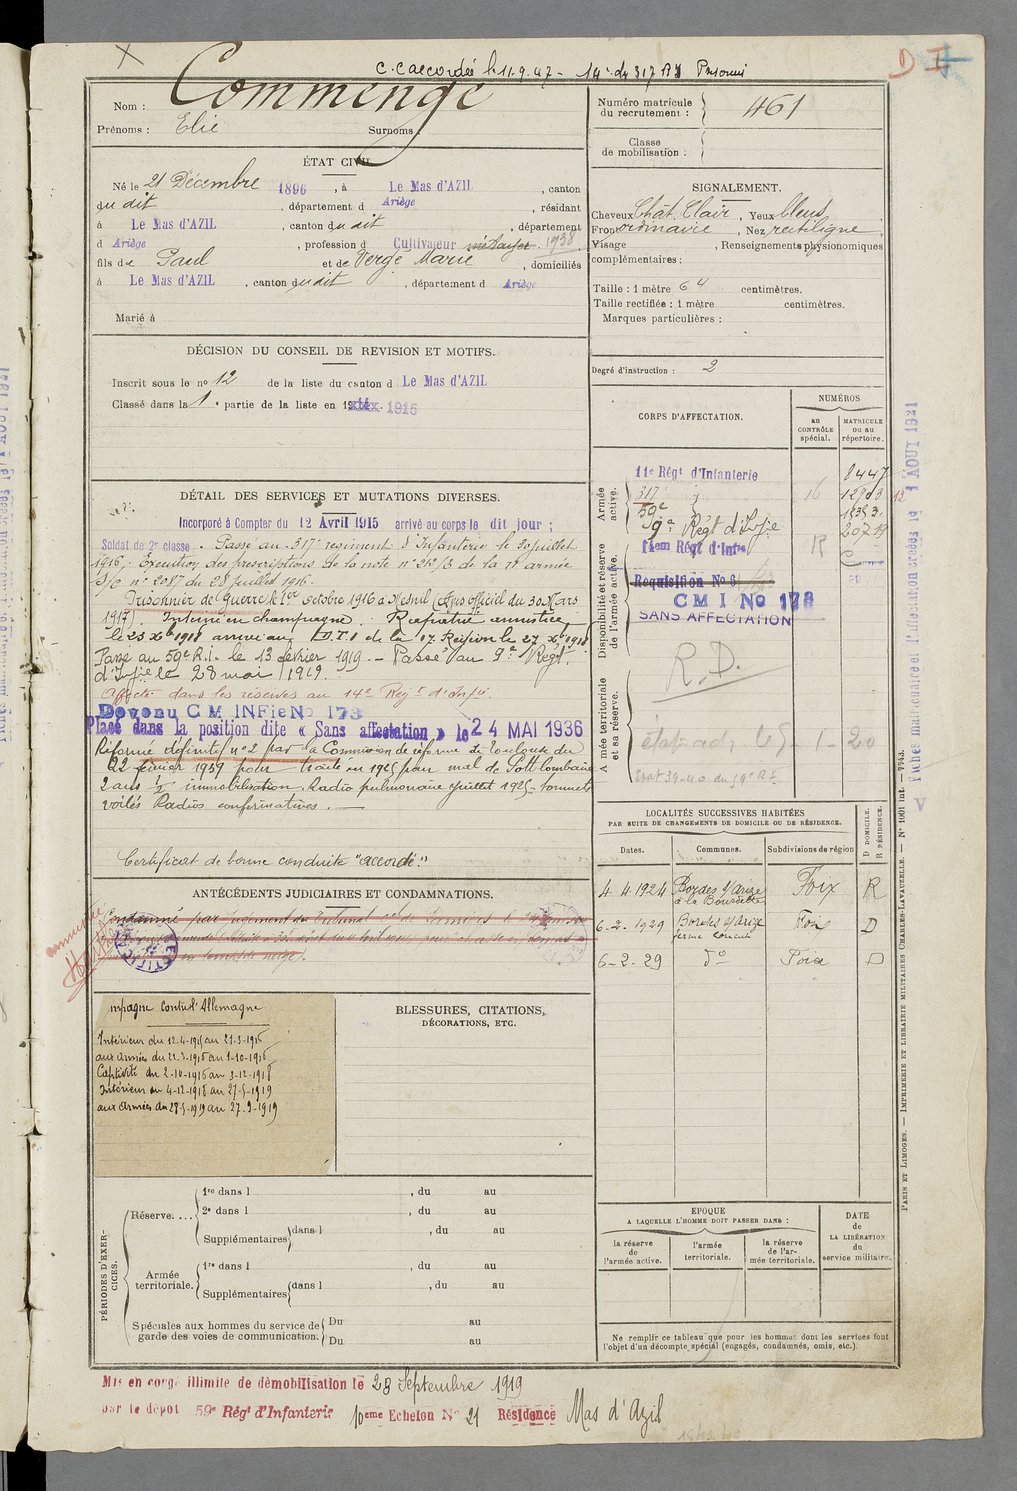 C.C accordée le 11-9-47 -
D
Commenge
Nom :
Prénoms : Elie Surnoms :
Numéro matricule du recrutement : 461
Classe de mobilisation :
ÉTAT CIVIL
Né le 21 Décembre 1896, à Le Mas d'AZIL, canton
du dit, département d Ariège, résidant
à Le Mas d'AZIL, canton du dit, département
d Ariège, profession d Cultivateur métayer. 1938
fils de Paul et de Vergé Marie, domiciliés
à Le Mas d'AZIL, canton du dit, département d Ariège
Marié à
SIGNALEMENT.
Cheveux Chât. Clair, Yeux bleus
Front ordinaire, Nez rectiligne
Visage, Renseignements physionomiques
complémentaires :
Taille : 1 mètre 64 centimètres.
Taille rectifiée : 1 mètre centimètres.
Marques particulières :
Degré d'instruction : 2
DÉCISION DU CONSEIL DE REVISION ET MOTIFS.
Inscrit sous le no 12 de la liste du canton d Le Mas d'AZIL
Classé dans la 1e partie de la liste en 19 1915
DÉTAIL DES SERVICES ET MUTATIONS DIVERSES.
Incorporé à Compter du 12 Avril 1915 arrivé au corps le dit jour ;
Soldat de 2e classe. Passé au 317e régiment d'Infanterie le 20 juillet
1916. Exécution des prescriptions de la note n°
S/C n° 2087 du 28 juillet 1916.
Prisonnier de guerre le 1er octobre 1916 à Mesnil (Avis officiel du 30 Mars
1917). Interné en champagne. Rapatrié armistice
le 23 Xbre 1918 arrivé au D.T.I de la 17e Région le 27 Xbre 1918
Passé au 59e R.I. le 13 février 1919. - Passé au 9e Régt
d'Infie le 28 mai 1919.
Affecté dans les réserves au 14e Régt d'Infie.
Devenu C M INFie No 173
Placé dans la position dite « Sans affectation » le 24 MAI 1936
Réformé définitif n° 2 par la Commission de réforme de Toulouse du
22 février 1937 pour traité en 1925 pour mal de Pott lombaire
2 ans ½ immobilisation. Radio pulmonaire juillet 1925 - sommets
voilés Radios confirmatives.
Certificat de bonne conduite "accordé."
ANTÉCÉDENTS JUDICIAIRES ET CONDAMNATIONS.
Condamné par jugement du tribunal
amnistié
CORPS D'AFFECTATION.
NUMÉROS
au CONTRÔLE spécial.
MATRICULE ou au répertoire.
Armée active.
11e Régt d'Infanterie 8447
317e 16
59e
9e Régt d'Infie 20719
Disponibilité et réserve de l'armée active.
14em Régt d'Infie
Requisition No 6
C M I No 173
SANS AFFECTATION
Armée territoriale et sa réserve.
R.D.
LOCALITÉS SUCCESSIVES HABITÉES
PAR SUITE DE CHANGEMENTS DE DOMICILE OU DE RÉSIDENCE.
Dates. Communes. Subdivisions de région D DOMICILE. R RÉSIDENCE.
4 4 1924 Bordes s/Arize Foix R
6-2-1929 Bordes s/Arize Foix D
6-2-29 do Foix D
mpagne contre l'Allemagne
Intérieur du 12-4-1915 au 21-3-1916
aux armées du 22-3-1916 au 1-10-1916
Captivité du 2-10-1916 au 3-12-1918
Intérieur du 4-12-1918 au 27-5-1919
aux armées du 28-5-1919 au 27-9-1919
BLESSURES, CITATIONS,
DÉCORATIONS, ETC.
PÉRIODES D'EXERCICES.
Réserve....
1re dans l , du au
2e dans l , du au
Supplémentaires dans l , du au
Armée territoriale.
1re dans l , du au
Supplémentaires dans l , du au
Spéciales aux hommes du service de garde des voies de communication.
Du au
Du au
EPOQUE
A LAQUELLE L'HOMME DOIT PASSER DANS :
la réserve de l'armée active.
l'armée territoriale.
la réserve de l'armée territoriale.
DATE de LA LIBÉRATION du service militaire.
Ne remplir ce tableau que pour les hommes dont les services font
l'objet d'un décompte spécial (engagés, condamnés, omis, etc.).
Mis en congé illimité de démobilisation le 28 Septembre 1919
par le dépôt 59e Régt d'Infanterie 10eme Echelon No 21 Résidence Mas d'Azil
PARIS ET LIMOGES. — IMPRIMERIE ET LIBRAIRIE MILITAIRES CHARLES-LAVAUZELLE. — No 1001 int. — 7743.
Fiches matriculaire et d'affectation créées le 1 AOUT 1921